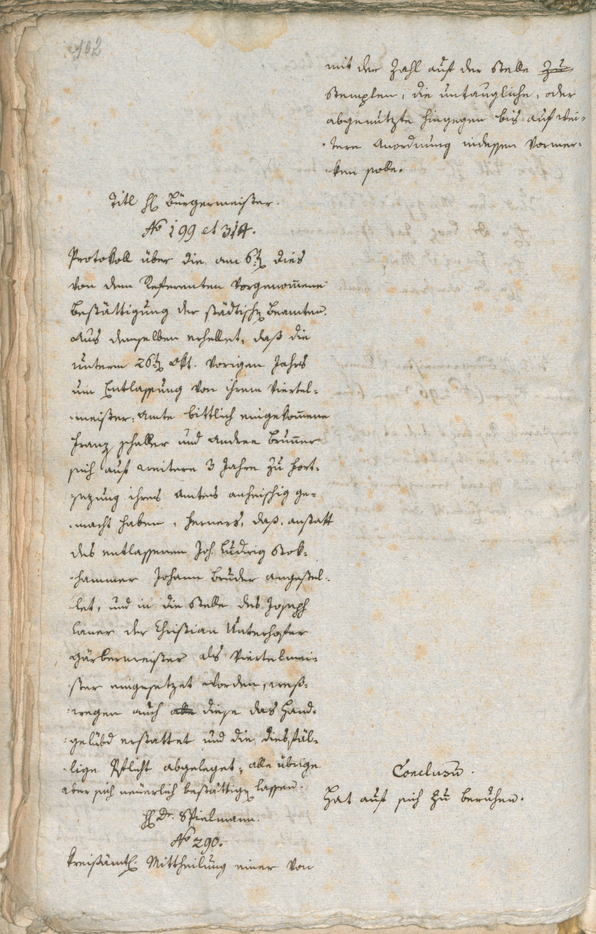 102
mit der Zahl auf der Stelle zu
Stemplen, die untaugliche, oder
abgenützte hingegen bis auf wei-
-tere Anordnung indessen vormer-
-ken solle.
Titl H: Bürgermeister.
No 199 et 314.
Protokoll über die am 6t: dies
von dem Referenten vorgenommene
Bestättigung der städtisch: Beamten.
Aus demselben erhellet, daß die
unterm 26t: Okt. vorigen Jahrs
um Entlassung von ihrem Viertel-
-meister-Amte bittlich eingekommene
Franz Schaller und Andree Brunner
sich auf weitere 3 Jahre zu Fort-
sezung ihres Amtes anheischig ge-
-macht haben, ferners, daß anstatt
des entlassenen Joh. Ludwig Stok-
-hammer Johann Bruder angestel-
-let, und in die Stelle des Joseph
Laner der Christian Unterhofer
Gärbermeister als Viertelmei-
ster eingesetzet worden, weß-
-wegen auch alle diese das Hand-
-gelübd erstattet und die diesfäl-
-lige Pflicht abgeleget, alle übrige
aber sich neuerlich bestättigen lassen.
Conclusum.
Hat auf sich zu beruhen.
H: Dr. Spielmann.
No 290.
Kreisämtl: Mittheilung einer von